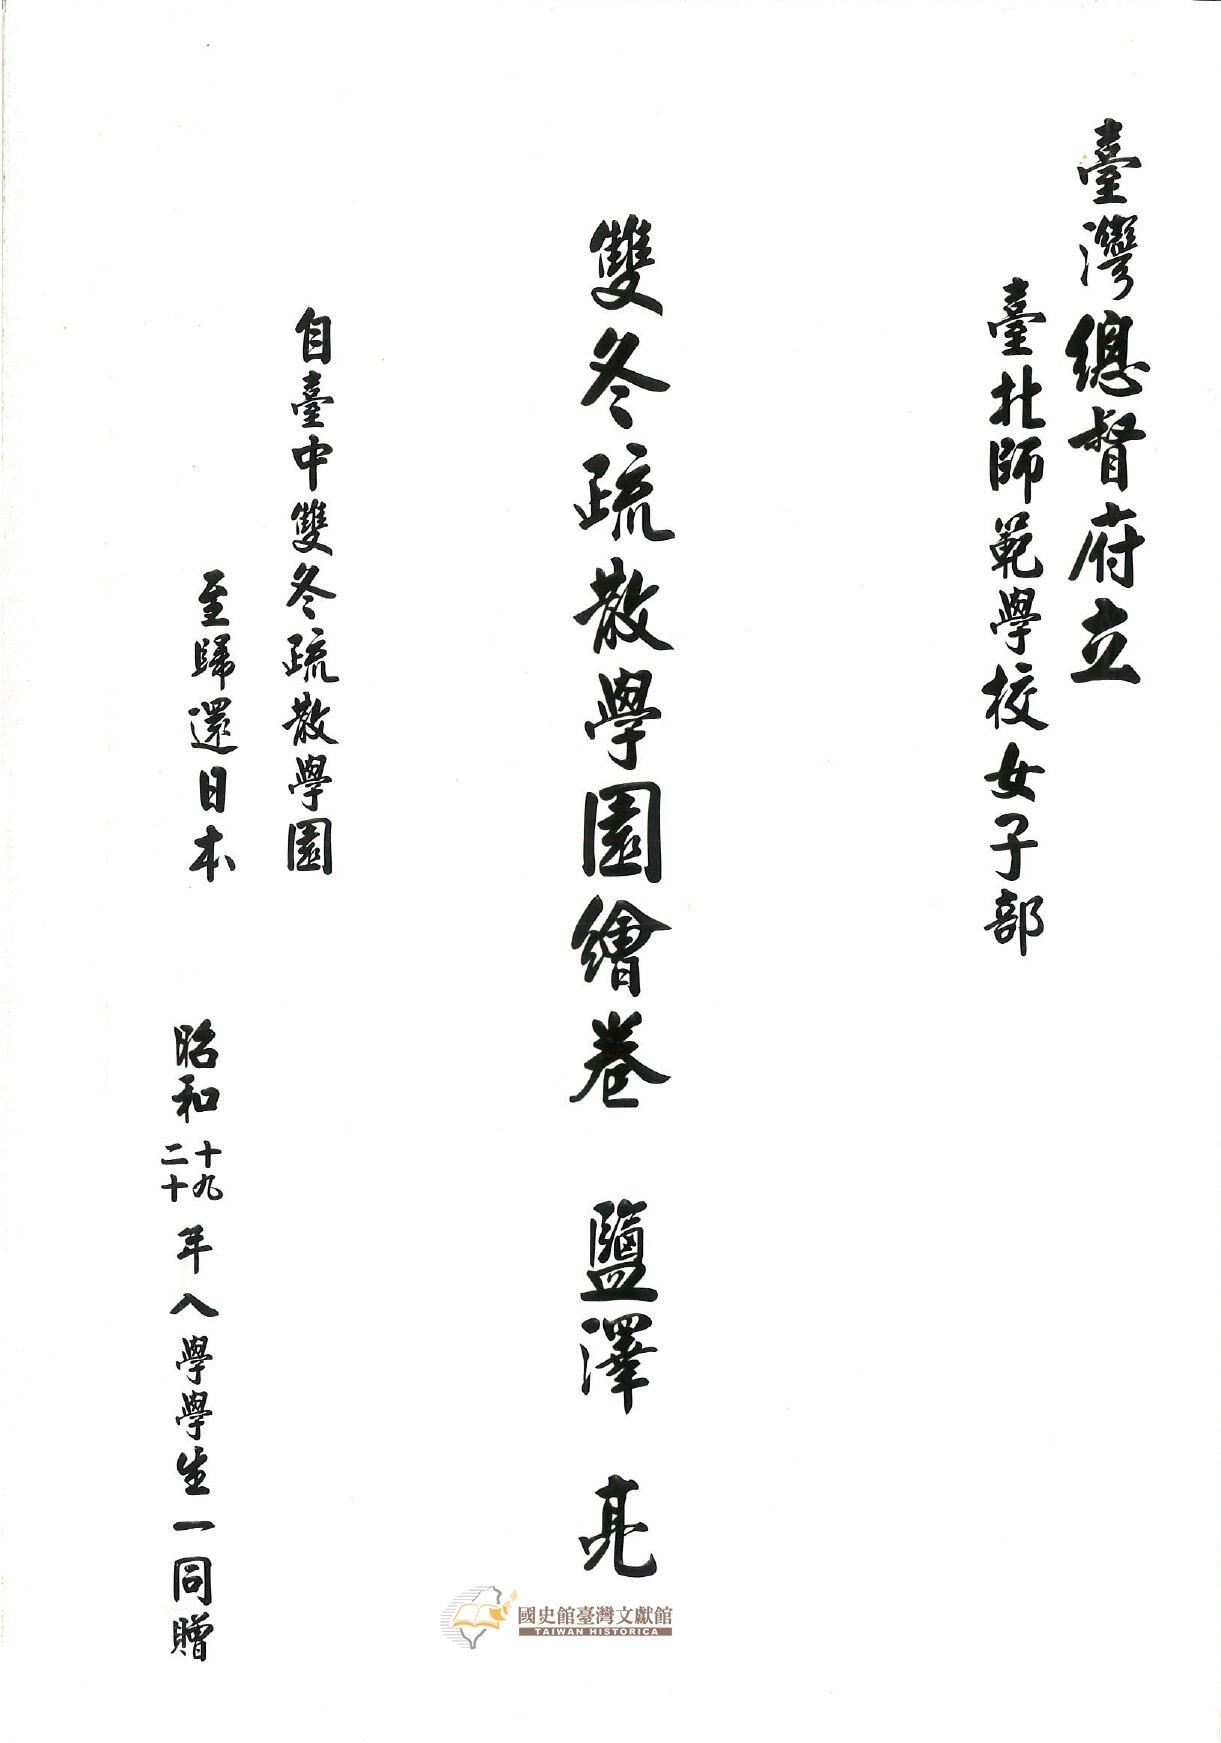 臺灣總督府立
臺北師範學校女子部
雙冬疏散學園繪卷 鹽澤 亮
自臺中雙冬疏散學園
至歸還日本
昭和十九二十年入學學生一同贈
國史館臺灣文獻館
TAIWAN HISTORICA